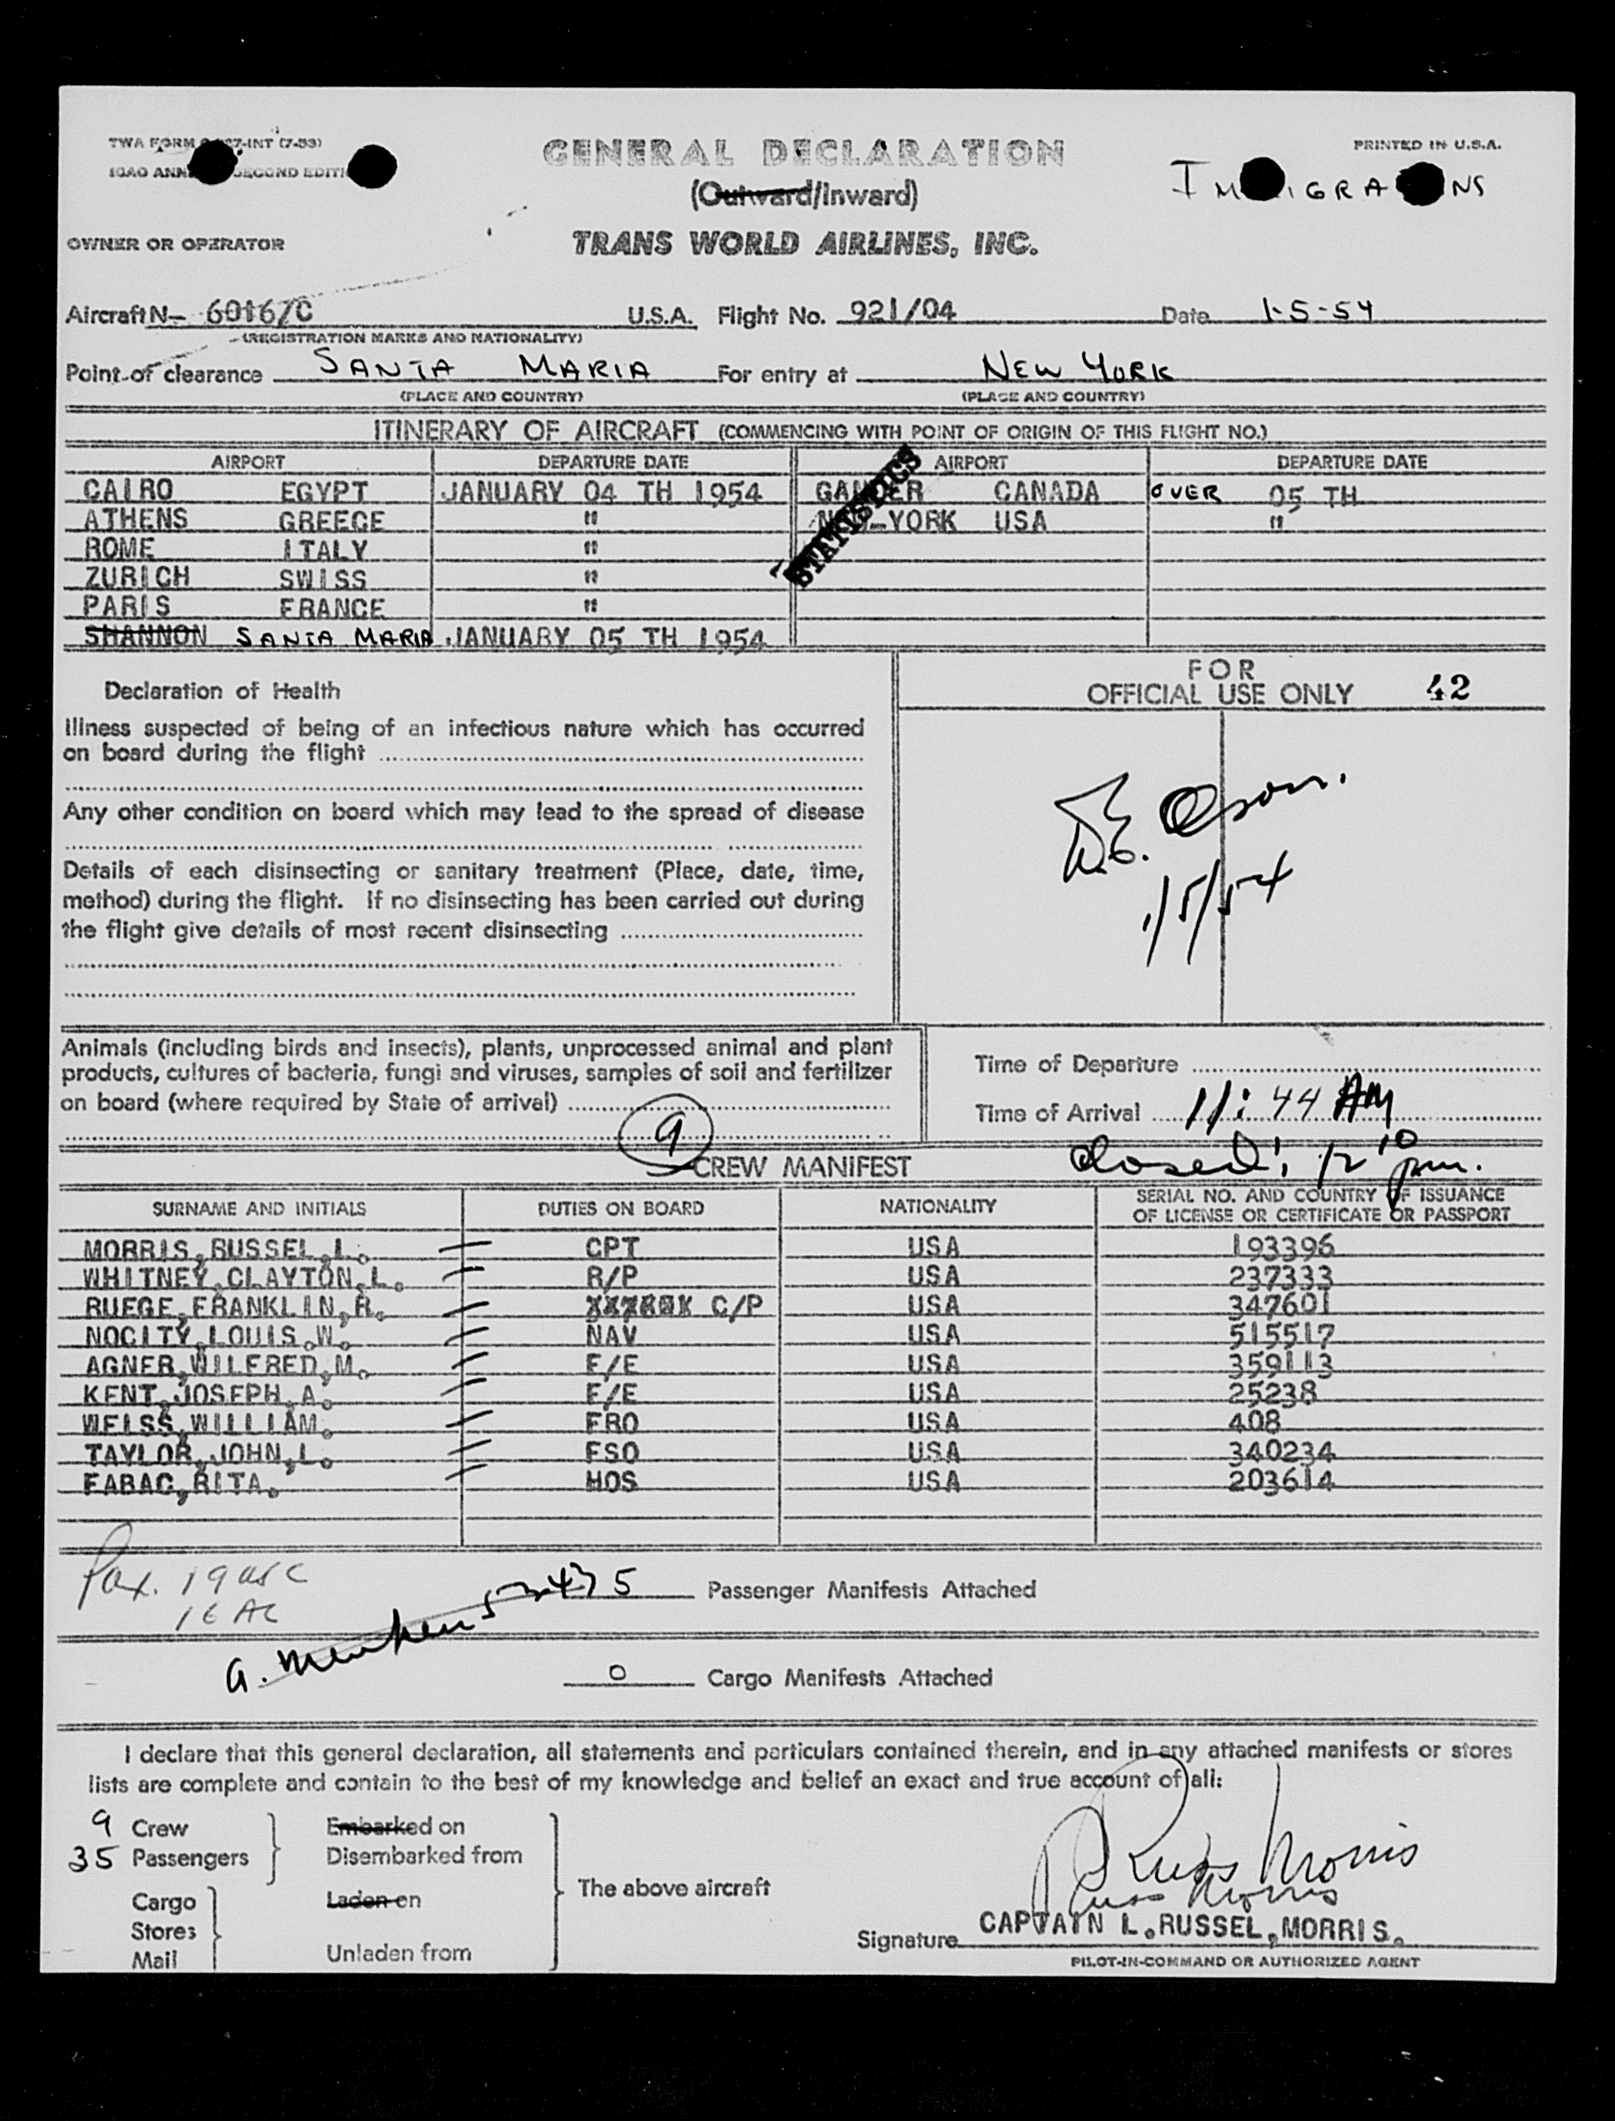 TWA FORM -INT (7-53)
PRINTED IN U.S.A.
GENERAL DECLARATION
ICAO ANN SECOND EDITI
(Outward/Inward)
IM IGRA NS
OWNER OR OPERATOR
TRANS WORLD AIRLINES, INC.
Aircraft N- 6016/C U.S.A. Flight No. 921/04 Date 1-5-54
(REGISTRATION MARKS AND NATIONALITY)
Point of clearance SANTA MARIA For entry at NEW YORK
(PLACE AND COUNTRY) (PLACE AND COUNTRY)
ITINERARY OF AIRCRAFT (COMMENCING WITH POINT OF ORIGIN OF THIS FLIGHT NO.)
AIRPORT DEPARTURE DATE AIRPORT DEPARTURE DATE
CAIRO EGYPT JANUARY 04 TH 1954 GANDER CANADA OVER 05 TH
ATHENS GREECE " NEW-YORK USA "
ROME ITALY "
STATISTICS
ZURICH SWISS "
PARIS FRANCE "
SHANNON SANTA MARIA JANUARY 05 TH 1954
FOR
OFFICIAL USE ONLY 42
Declaration of Health
Illness suspected of being of an infectious nature which has occurred
on board during the flight
Any other condition on board which may lead to the spread of disease
Details of each disinsecting or sanitary treatment (Place, date, time,
method) during the flight. If no disinsecting has been carried out during
the flight give details of most recent disinsecting
1/5/54
Animals (including birds and insects), plants, unprocessed animal and plant
products, cultures of bacteria, fungi and viruses, samples of soil and fertilizer
on board (where required by State of arrival)
Time of Departure
Time of Arrival 11:44 AM
9
CREW MANIFEST
closed: 12 10 pm.
SURNAME AND INITIALS DUTIES ON BOARD NATIONALITY SERIAL NO. AND COUNTRY OF ISSUANCE
OF LICENSE OR CERTIFICATE OR PASSPORT
MORRIS,RUSSEL,L. CPT USA 193396
WHITNEY,CLAYTON,L. R/P USA 237333
RUEGE,FRANKLIN,R. C/P USA 347601
NOCITY,LOUIS,W. NAV USA 515517
AGNER,WILFRED,M. F/E USA 359113
KENT,JOSEPH,A. F/E USA 25238
WEISS,WILLIAM. FRO USA 408
TAYLOR,JOHN,L. FSO USA 340234
FABAC,RITA. HOS USA 203614
Pax. 19 USC
Passenger Manifests Attached
0 Cargo Manifests Attached
I declare that this general declaration, all statements and particulars contained therein, and in any attached manifests or stores
lists are complete and contain to the best of my knowledge and belief an exact and true account of all:
9 Crew Embarked on
35 Passengers Disembarked from
The above aircraft
Cargo Laden on
Stores
Mail Unladen from
Russ Morris
Russ Morris
Signature CAPTAIN L.RUSSEL,MORRIS.
PILOT-IN-COMMAND OR AUTHORIZED AGENT